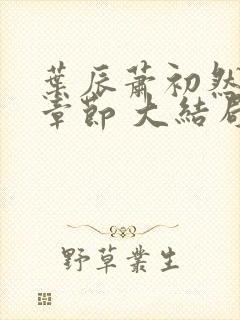 葉辰蕭初然
章節 大結局
野草叢生